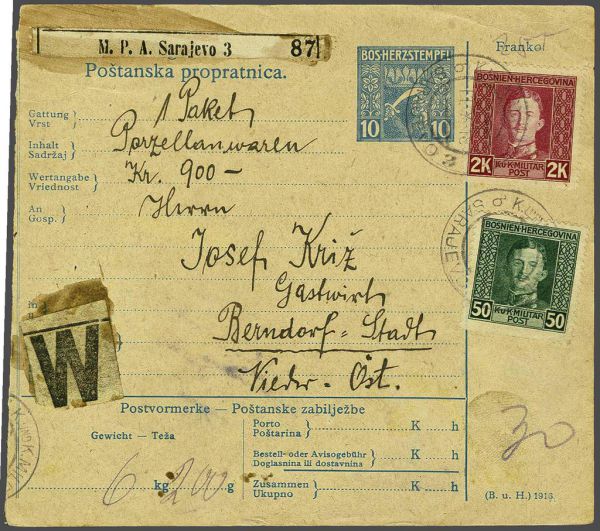 M. P. A. Sarajevo 3 87
Poštanska propratnica.
BOS-HERZ STEMPEL
10 10
Franko!
Gattung
Vrst
1 Paket
Inhalt
Sadržaj
Porzellanwaren
Wertangabe
Vriednost
Kr. 900 –
An
Gosp.
Herrn
Josef Križ
Gastwirt
in
Berndorf-Stadt
Nieder-Öst.
W
BOSNIEN-HERCEGOVINA
2K 2K
K.u.K. MILITÄR
POST
BOSNIEN-HERCEGOVINA
50 50
K.u.K. MILITÄR
POST
SARAJEVO
Postvormerke — Poštanske zabilježbe
Gewicht — Teža
6 kg 200 g
Porto
Poštarina
K h
Bestell- oder Avisogebühr
Doglasnina ili dostavnina
K h
Zusammen
Ukupno
K h
30
(B. u. H.) 1916.